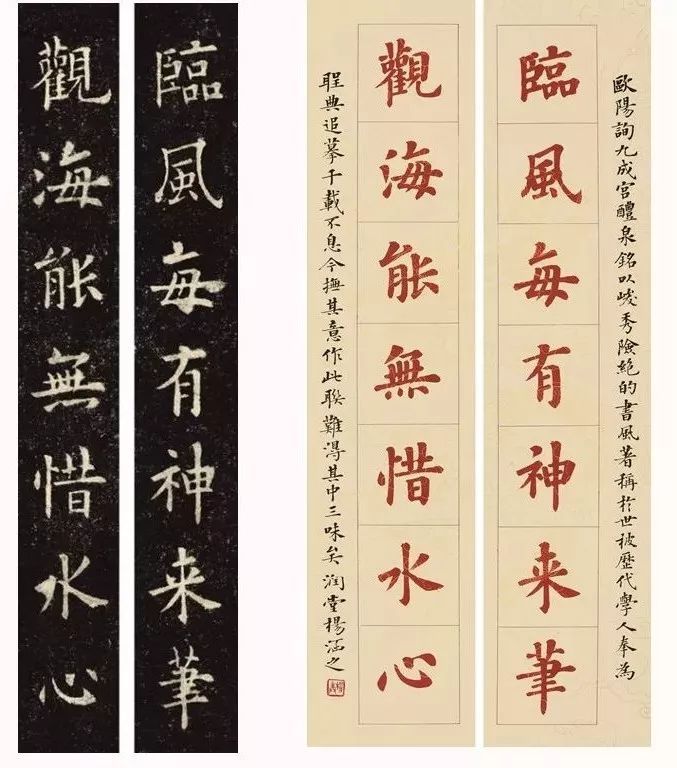 歐陽詢九成宫醴泉銘以峻秀險絶的書風著稱於世被歷代學人奉為
臨風每有神来筆
觀海能無惜水心
聖典追摹千載不息今撫其意作此聯難得其中三味矣 润堂楊涵之
臨風每有神来筆
觀海能無惜水心